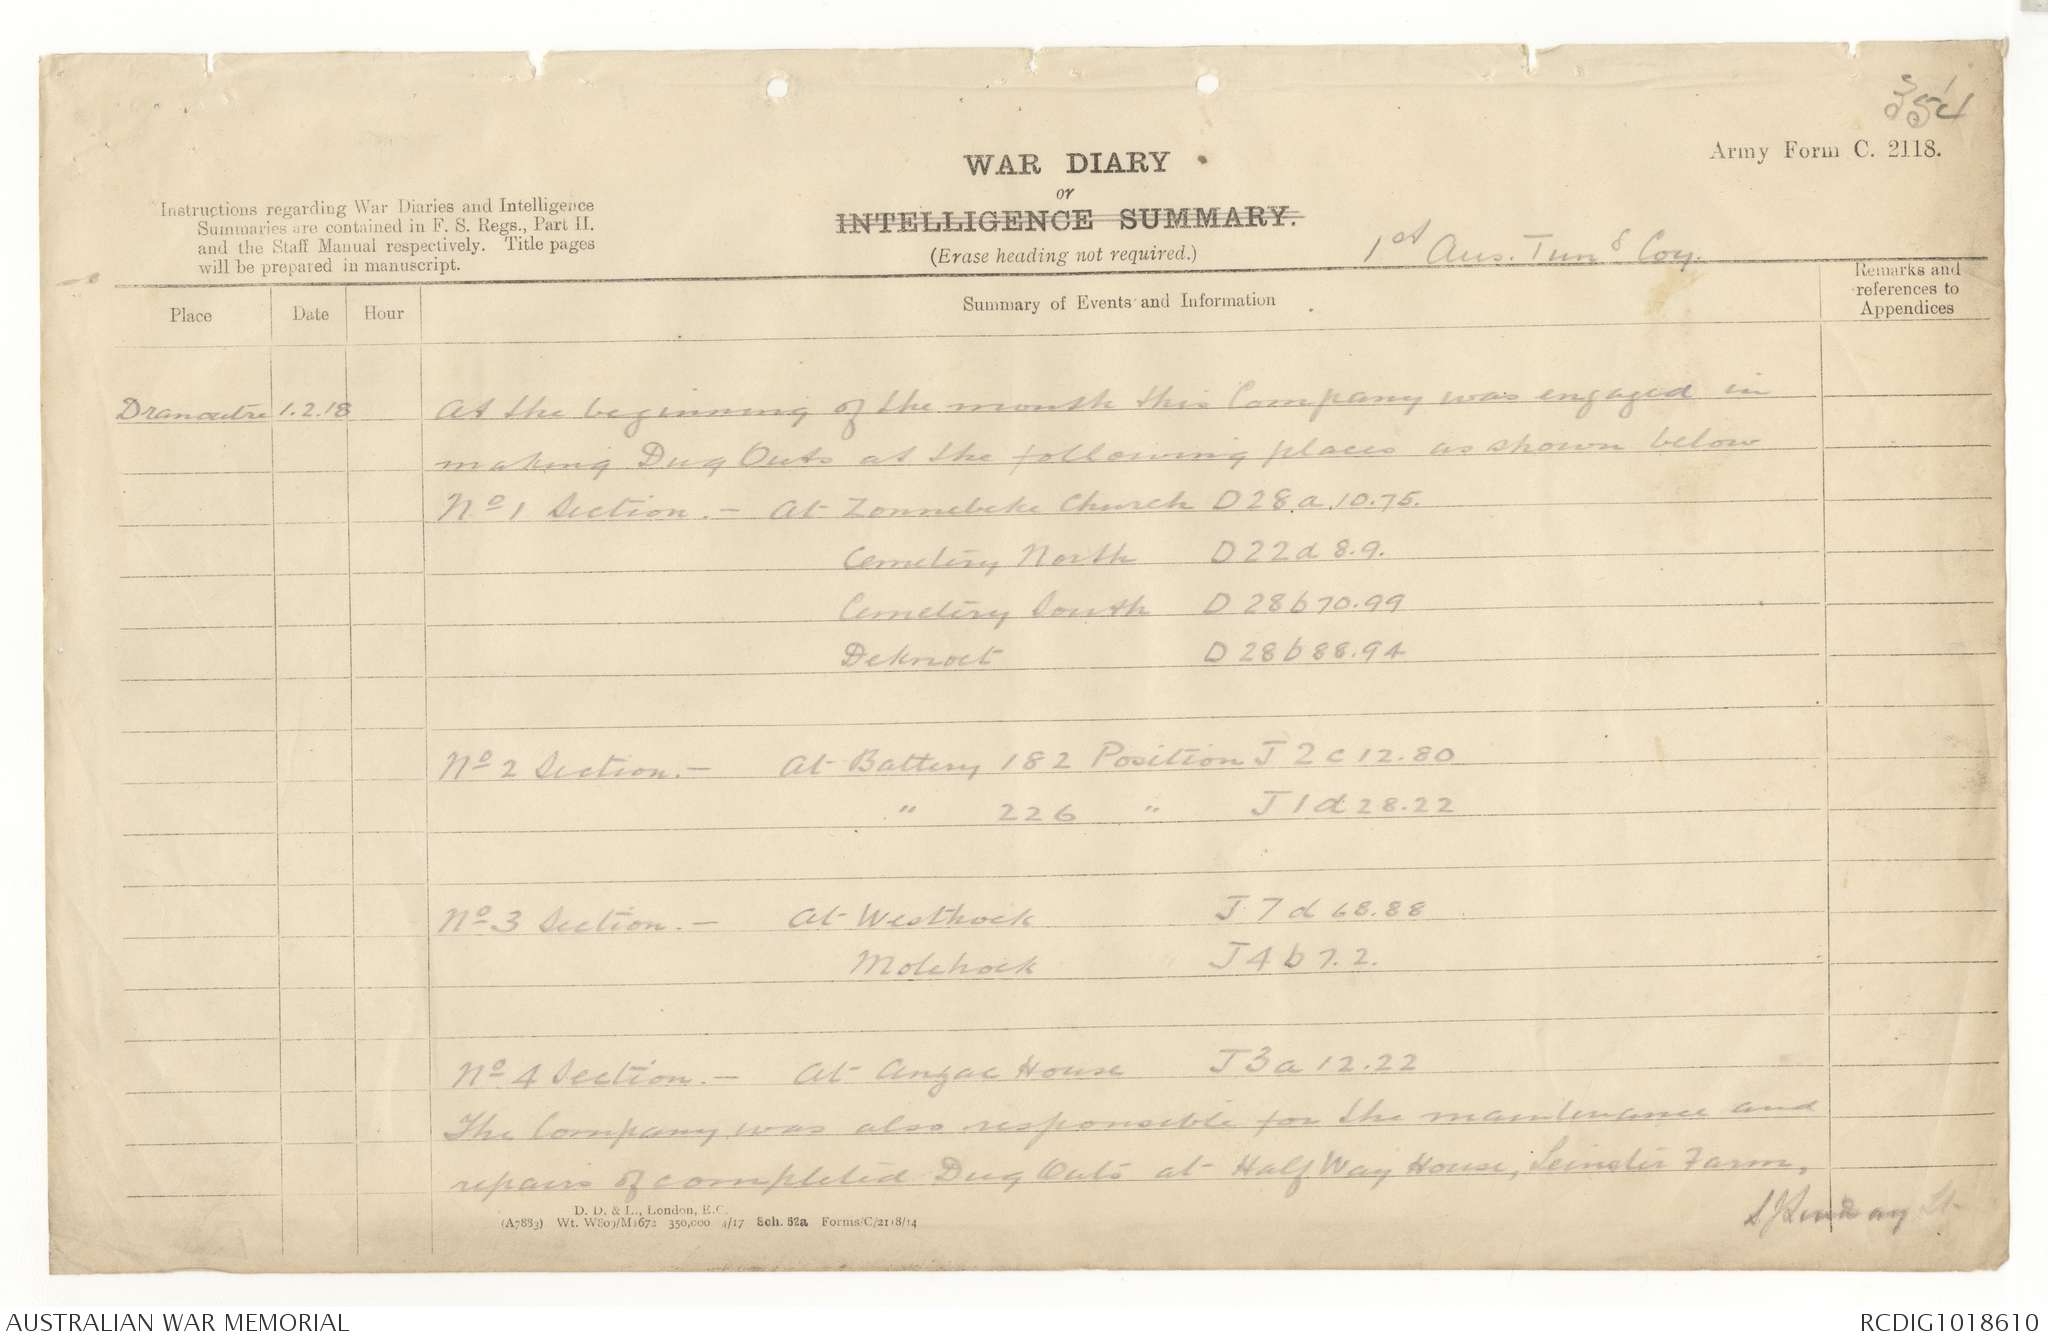 354
Army Form C. 2118.
WAR DIARY
or
INTELLIGENCE SUMMARY.
(Erase heading not required.)
Instructions regarding War Diaries and Intelligence
Summaries are contained in F. S. Regs., Part II.
and the Staff Manual respectively. Title pages
will be prepared in manuscript.
1st Aus. Tung Coy.
Place Date Hour Summary of Events and Information Remarks and references to Appendices
Dranoutre 1.2.18 At the beginning of the month this Company was engaged in
making Dug Outs at the following places as shown below
No 1 Section. - At Zonnebeke Church D28.a.10.75.
Cemetery North D22d 8.9.
Cemetery South D28b70.99
Deknoet D28b88.94
No 2 Section. - At Battery 182 Position J2c12.80
" 226 " J1d28.22
No 3 Section. - At Westhoek J7d68.88
Molehoek J4b7.2.
No 4 Section. - At Anzac House J3a12.22
The Company was also responsible for the maintenance and
repairs of completed Dug Outs at Half Way House, Leinster Farm,
Lindsay Lt
D. D. & L., London, E.C.
(A7883) Wt. W809/M1672 350,000 4/17 Sch. 52a Forms/C/2118/14
AUSTRALIAN WAR MEMORIAL
RCDIG1018610